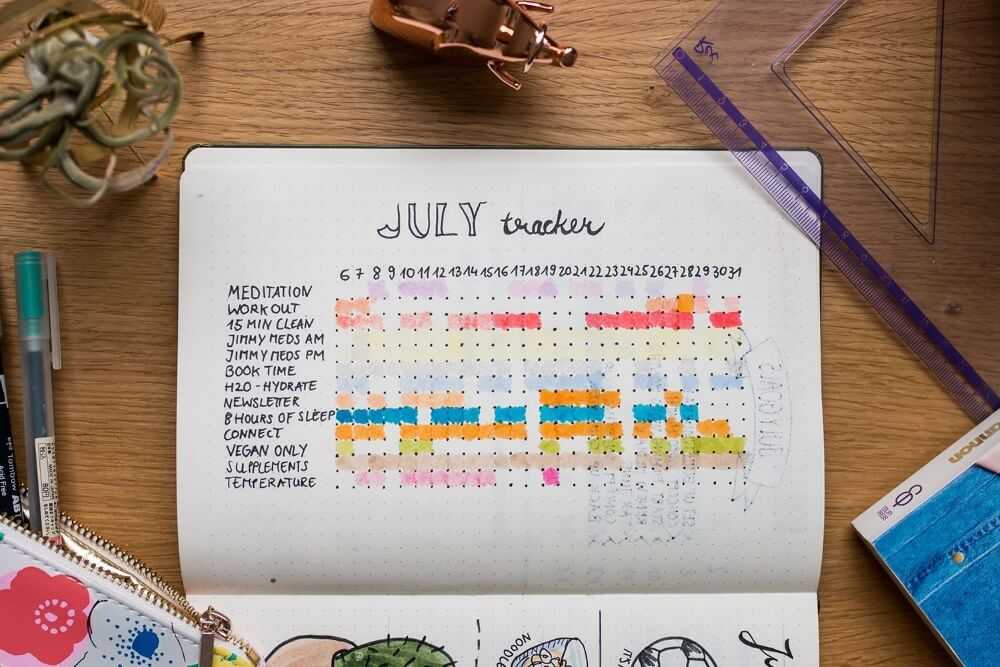 JULY tracker
6 7 8 9 10 11 12 13 14 15 16 17 18 19 20 21 22 23 24 25 26 27 28 29 30 31
MEDITATION
WORK OUT
15 MIN CLEAN
JIMMY MEDS AM
JIMMY MEDS PM
BOOK TIME
H2O - HYDRATE
NEWSLETTER
8 HOURS OF SLEEP
CONNECT
VEGAN ONLY
SUPPLEMENTS
TEMPERATURE
NOODLE
IT'S
Ju
Tombow AB
Acid Free